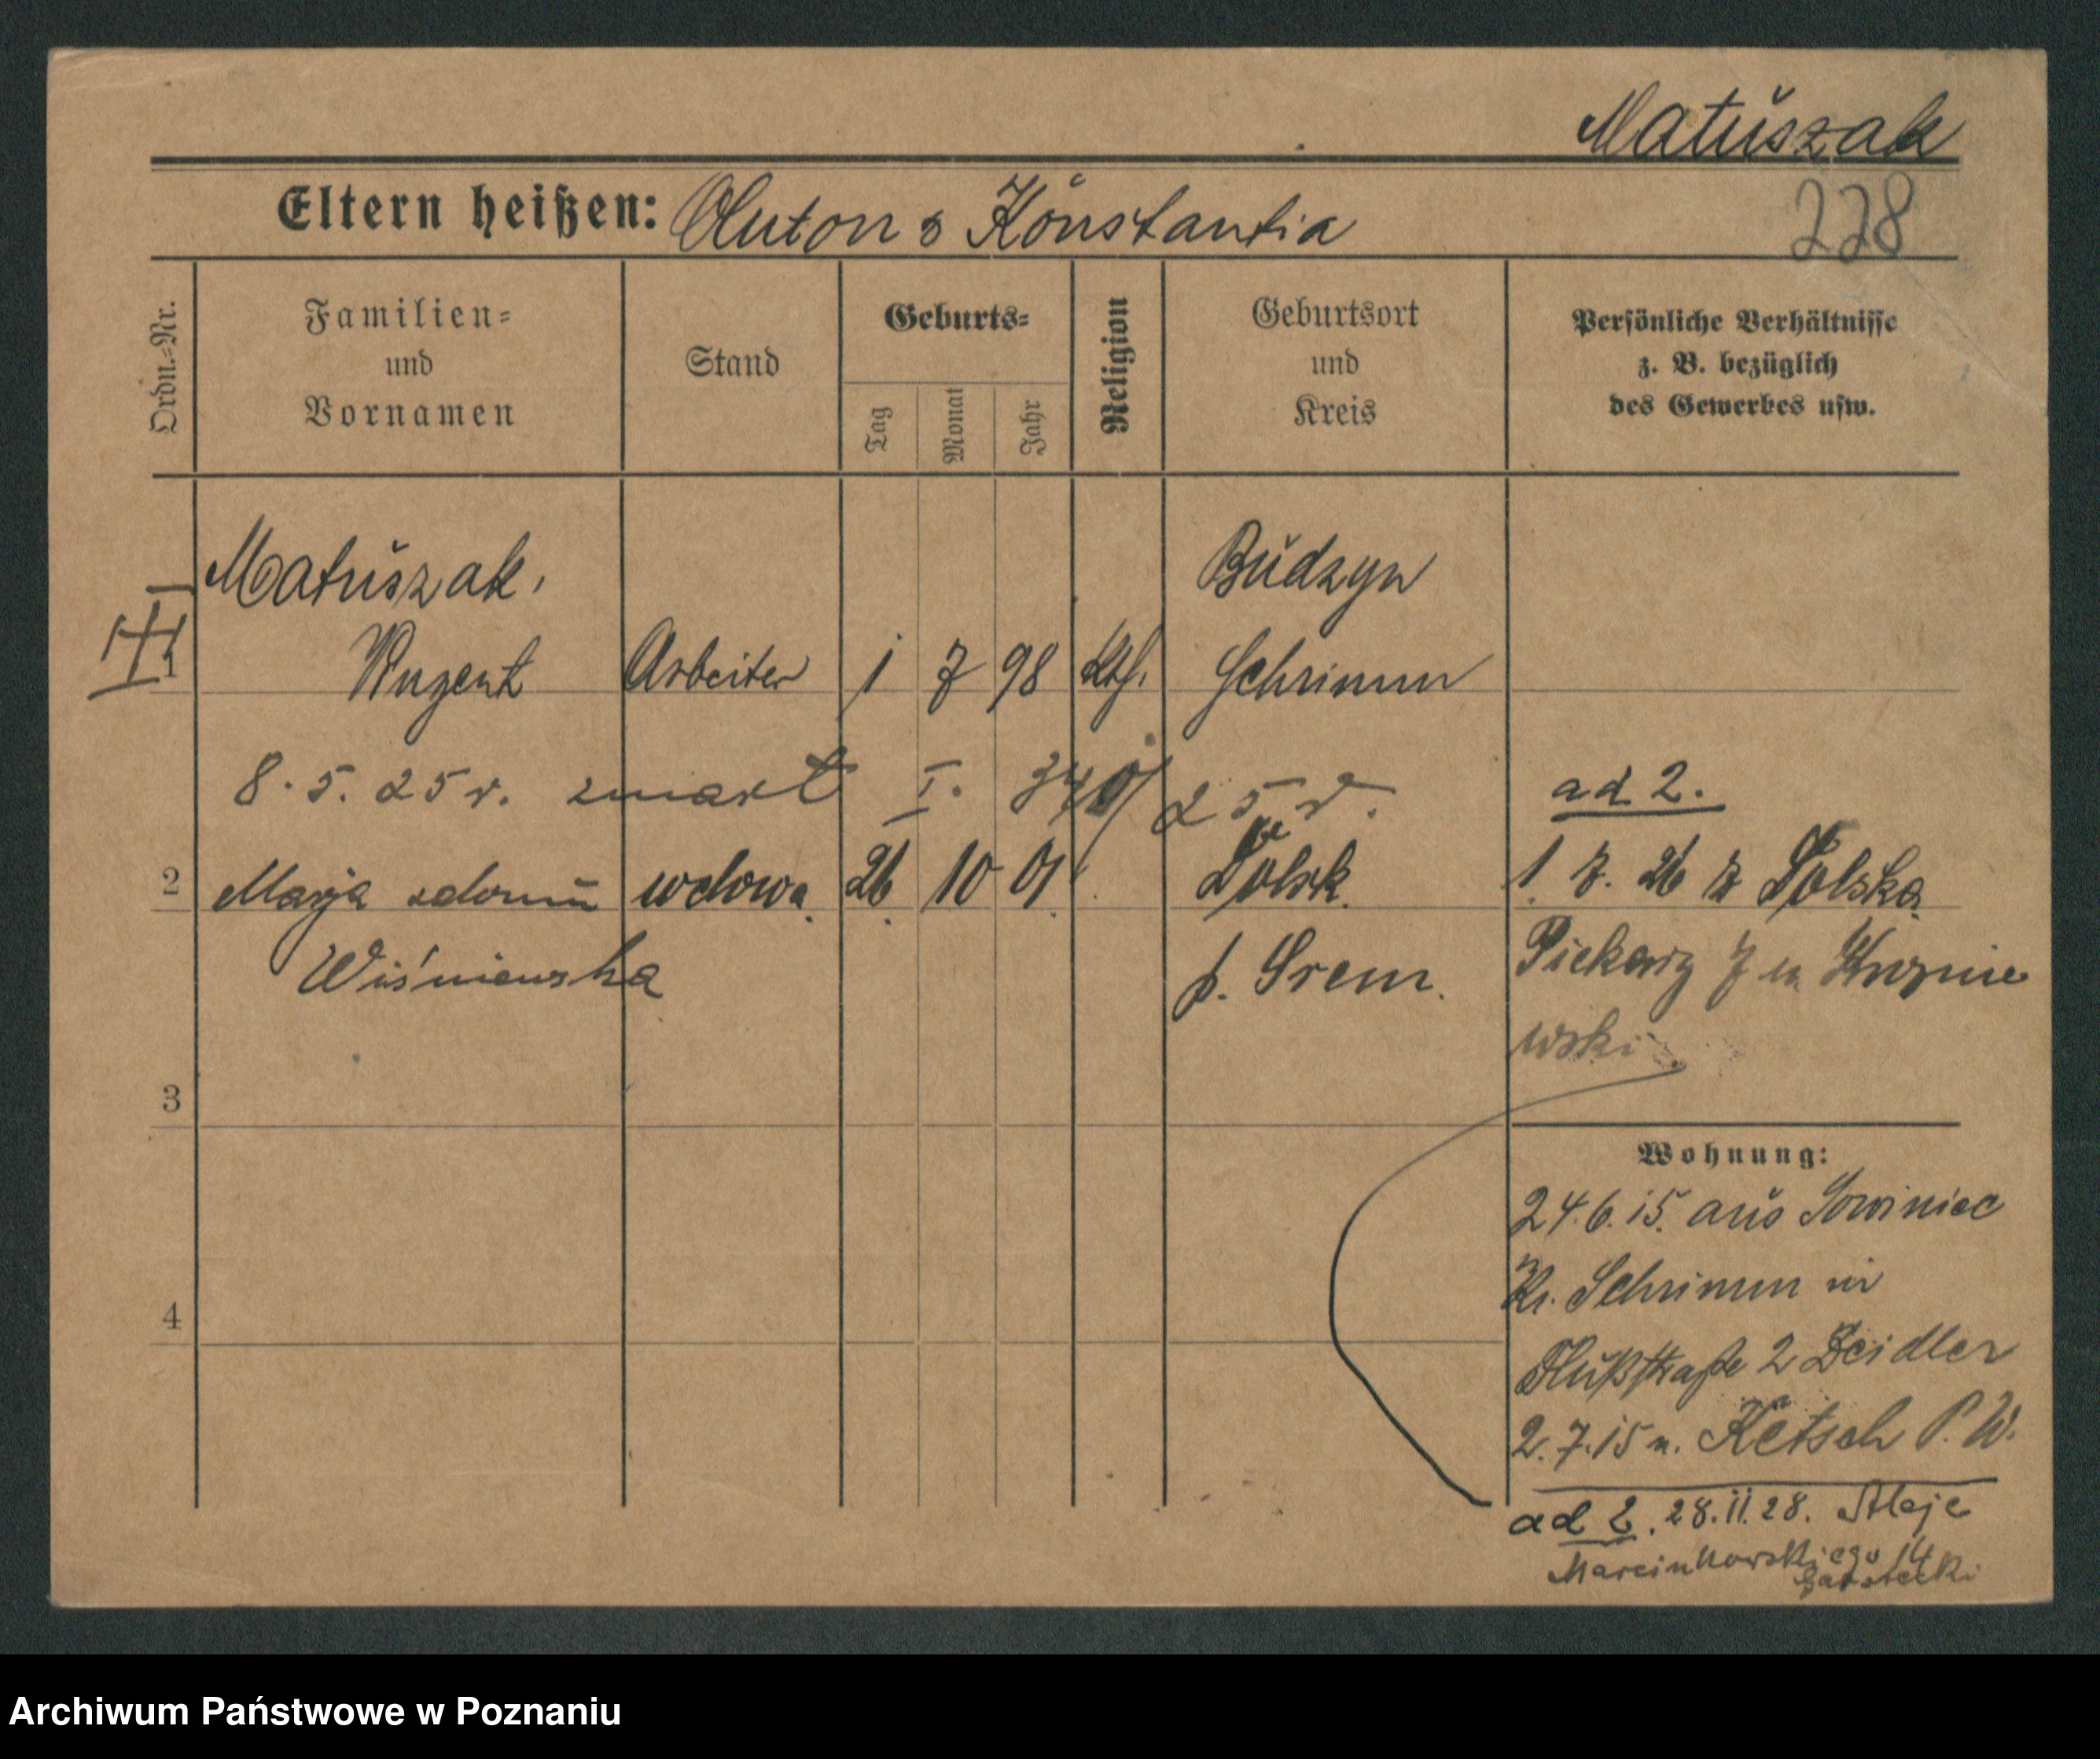 Matuszak
Eltern heißen: Anton & Konstantia
228
Ordn.-Nr.
Familien-
und
Vornamen
Stand
Geburts-
Tag
Monat
Jahr
Religion
Geburtsort
und
Kreis
Persönliche Verhältnisse
z. B. bezüglich
des Gewerbes usw.
Matuszak, Budzyn
1 Vinzent Arbeiter 1 7 98 kth. Schrimm
8. 5. 25 r. zmarł I. 340/25 r. ad 2.
2 Marja z domu wdowa 26 10 01 Dolsk 1 7. 26 z Dolska
Wiśniewska p. Śrem. Piekary 7 u
wski
3
Wohnung:
24.6.15. aus Sowiniec
Kr. Schrimm in
4
Flußstraße 2 Zeidler
2.7.15 n. Ketsch P. W.
ad 2. 28.11.28. Aleje
Marcinkowskiego 14
Garstecki
Archiwum Państwowe w Poznaniu